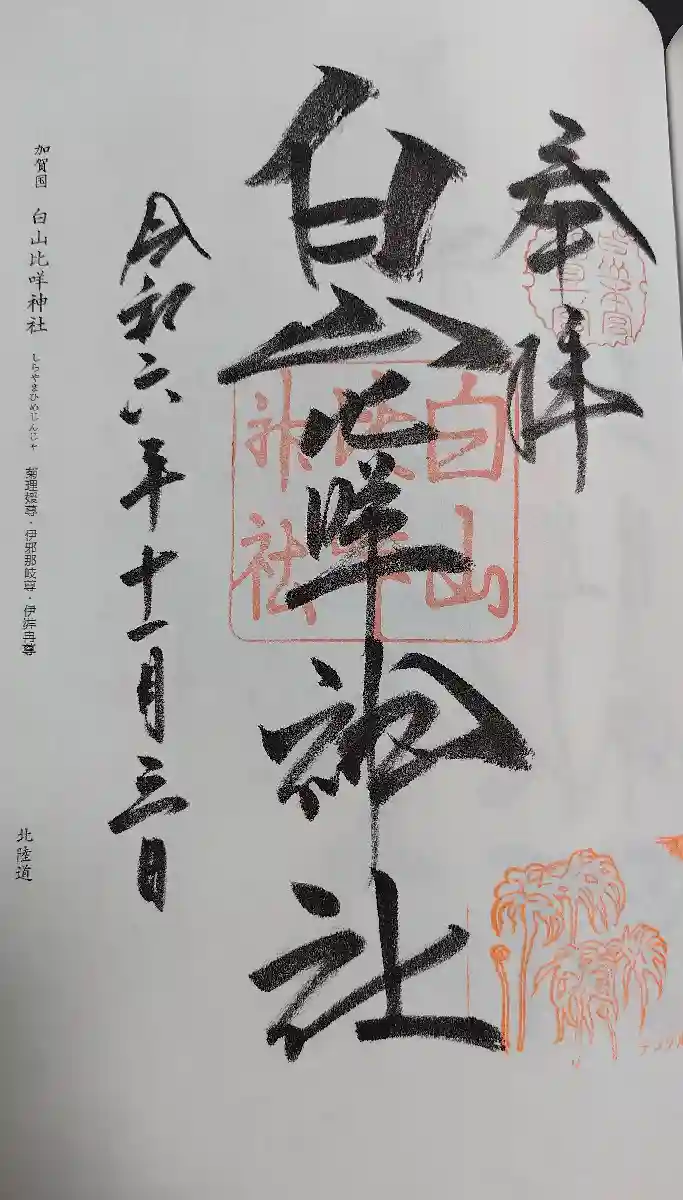 奉拝
白山比咩神社
白山
比咩
神社
令和六年十一月三日
加賀国 白山比咩神社 しらやまひめじんじゃ 菊理媛尊・伊邪那岐尊・伊弉冉尊
北陸道